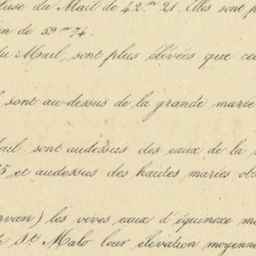 du Mail de 4.m 21. Elles sont
de 59 m 74.
du Mail, sont plus élevées que
sont au-dessus de la grande marée
sont audessus des eaux de la
et audessus des hautes marées
les vives eaux d'équinoxe
St. Malo leur élévation moyenne